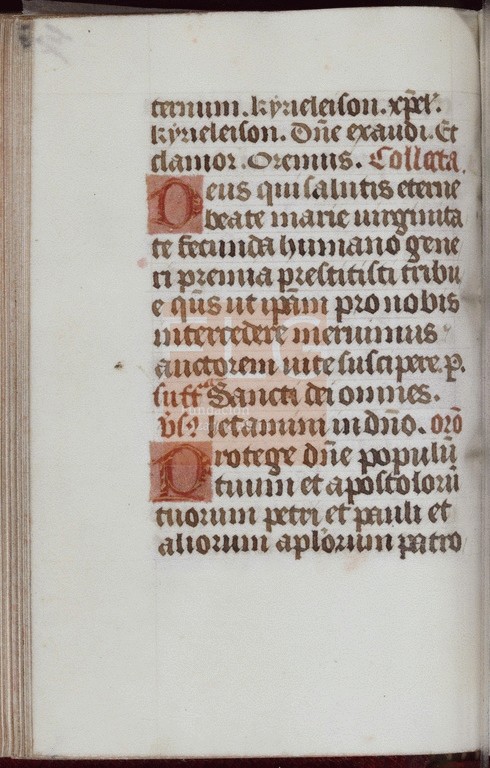 ternum. kyrieleison. xp̄el'.
kyrieleison. Dn̄e exaudi. Et
clamor. Oremus. Collecta.
Deus qui salutis eterne
beate marie uirginita
te fecunda humano gene
ri premia prestitisti tribu
e qs̄ ut ip̄am pro nobis
intercedere meruimus
auctorem uite suscipere. p.
suff. Sancti dei omnes.
vs. letamini in dn̄o. orō
Protege dn̄e populū
tuum et apostolorū
tuorum petri et pauli et
aliorum apl̄orum patro